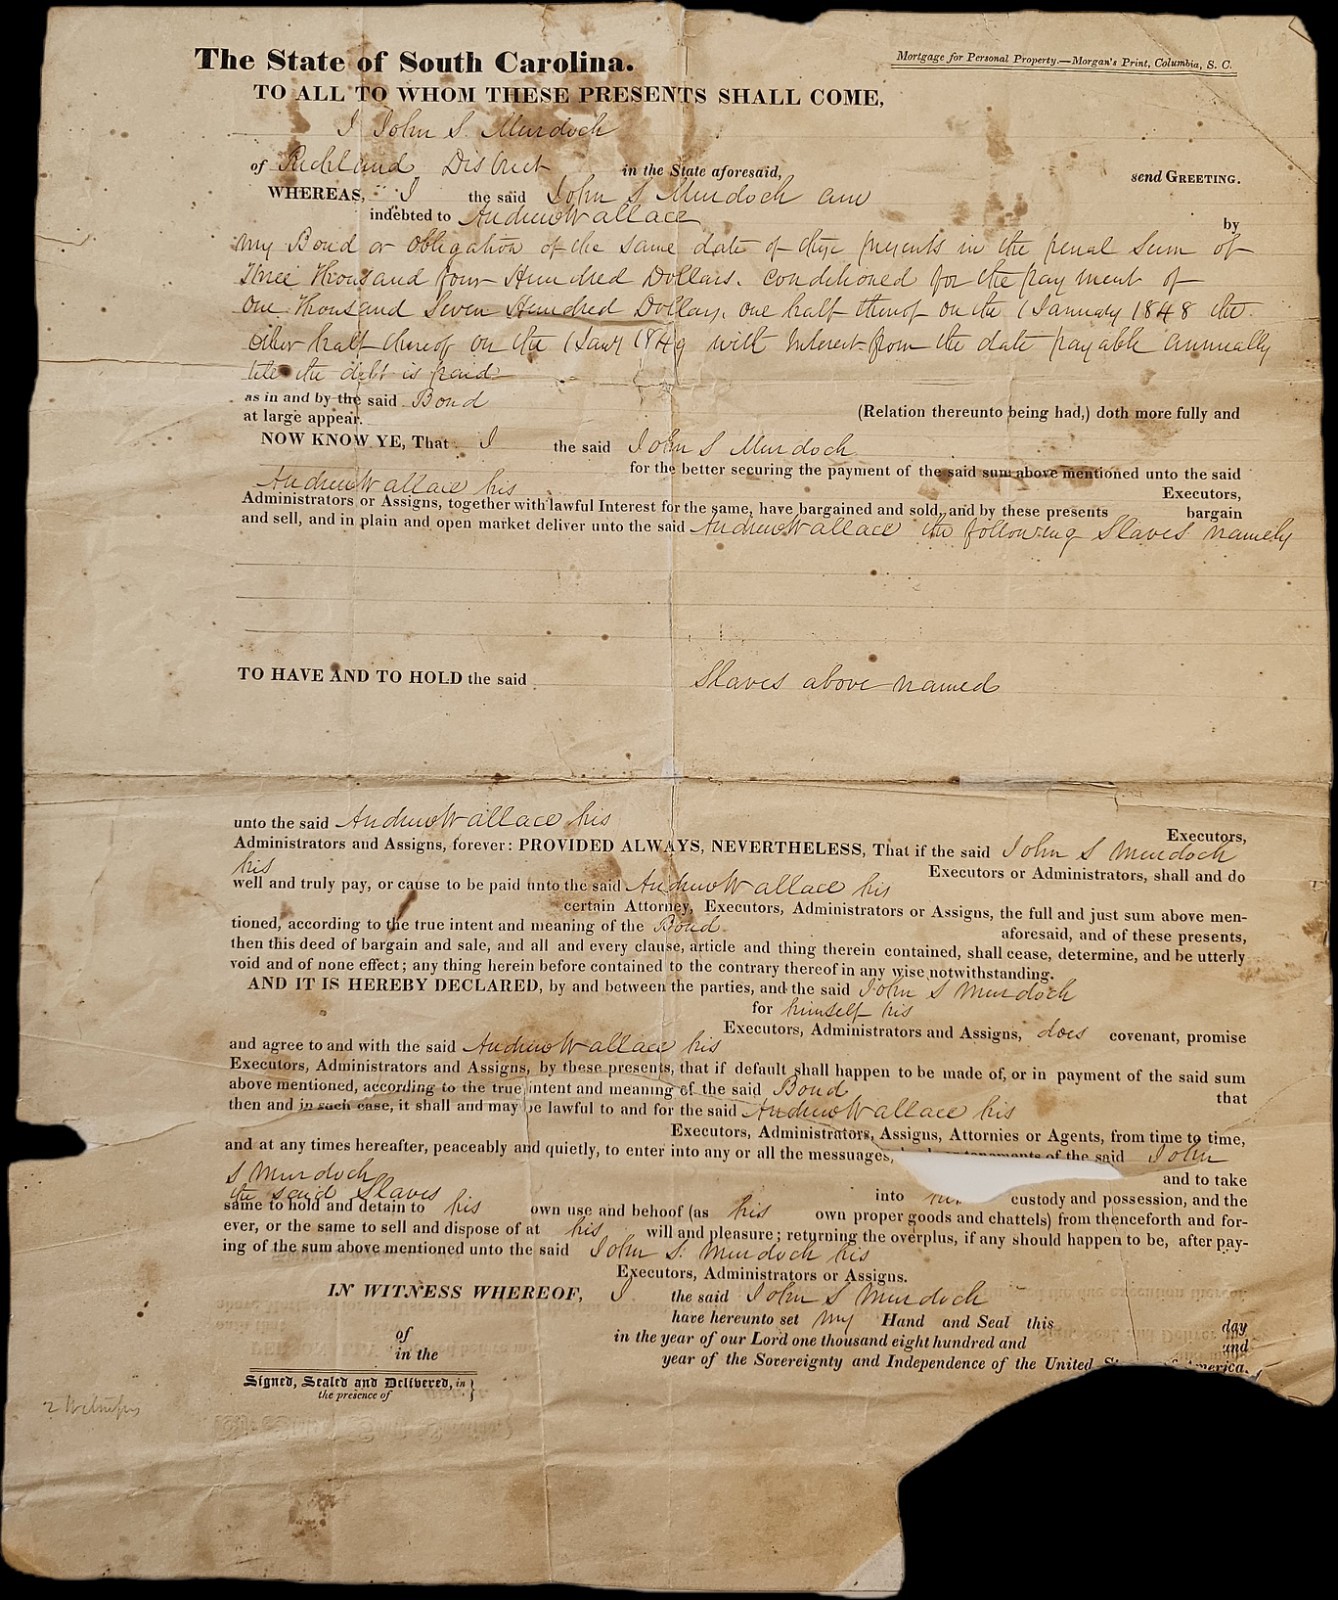 The State of South Carolina.
Mortgage for Personal Property.—Morgan's Print, Columbia, S. C.
TO ALL TO WHOM THESE PRESENTS SHALL COME,
I John S. Murdoch
of Richland District in the State aforesaid, send GREETING.
WHEREAS, I the said John S Murdoch am
indebted to Andrew Wallace by
my Bond or obligation of the same date of these presents in the penal Sum of
Three Thousand four Hundred Dollars. conditioned for the payment of
One Thousand Seven Hundred Dollars, one half thereof on the 1 January 1848 the
other half thereof on the 1 Jany 1849 with Interest from the date payable annually
till the debt is paid
as in and by the said Bond
at large appear. (Relation thereunto being had,) doth more fully and
NOW KNOW YE, That I the said John S Murdoch
for the better securing the payment of the said sum above mentioned unto the said
Andrew Wallace his Executors,
Administrators or Assigns, together with lawful Interest for the same, have bargained and sold, and by these presents bargain
and sell, and in plain and open market deliver unto the said Andrew Wallace the following Slaves namely
TO HAVE AND TO HOLD the said Slaves above named
unto the said Andrew Wallace his Executors,
Administrators and Assigns, forever: PROVIDED ALWAYS, NEVERTHELESS, That if the said John S Murdoch
his Executors or Administrators, shall and do
well and truly pay, or cause to be paid unto the said Andrew Wallace his
certain Attorney, Executors, Administrators or Assigns, the full and just sum above men-
tioned, according to the true intent and meaning of the Bond aforesaid, and of these presents,
then this deed of bargain and sale, and all and every clause, article and thing therein contained, shall cease, determine, and be utterly
void and of none effect; any thing herein before contained to the contrary thereof in any wise notwithstanding.
AND IT IS HEREBY DECLARED, by and between the parties, and the said John S Murdoch
for himself his
Executors, Administrators and Assigns, does covenant, promise
and agree to and with the said Andrew Wallace his
Executors, Administrators and Assigns, by these presents, that if default shall happen to be made of, or in payment of the said sum
above mentioned, according to the true intent and meaning of the said Bond that
then and in such case, it shall and may be lawful to and for the said Andrew Wallace his
Executors, Administrators, Assigns, Attornies or Agents, from time to time,
and at any times hereafter, peaceably and quietly, to enter into any or all the messuages, of the said John
S Murdoch and to take
the said Slaves into custody and possession, and the
same to hold and detain to his own use and behoof (as his own proper goods and chattels) from thenceforth and for-
ever, or the same to sell and dispose of at his will and pleasure; returning the overplus, if any should happen to be, after pay-
ing of the sum above mentioned unto the said John S. Murdoch his
Executors, Administrators or Assigns.
IN WITNESS WHEREOF, I the said John S Murdoch
have hereunto set my Hand and Seal this day
of in the year of our Lord one thousand eight hundred and and
in the year of the Sovereignty and Independence of the United America.
Signed, Sealed and Delivered, in
the presence of
2 Witnesses